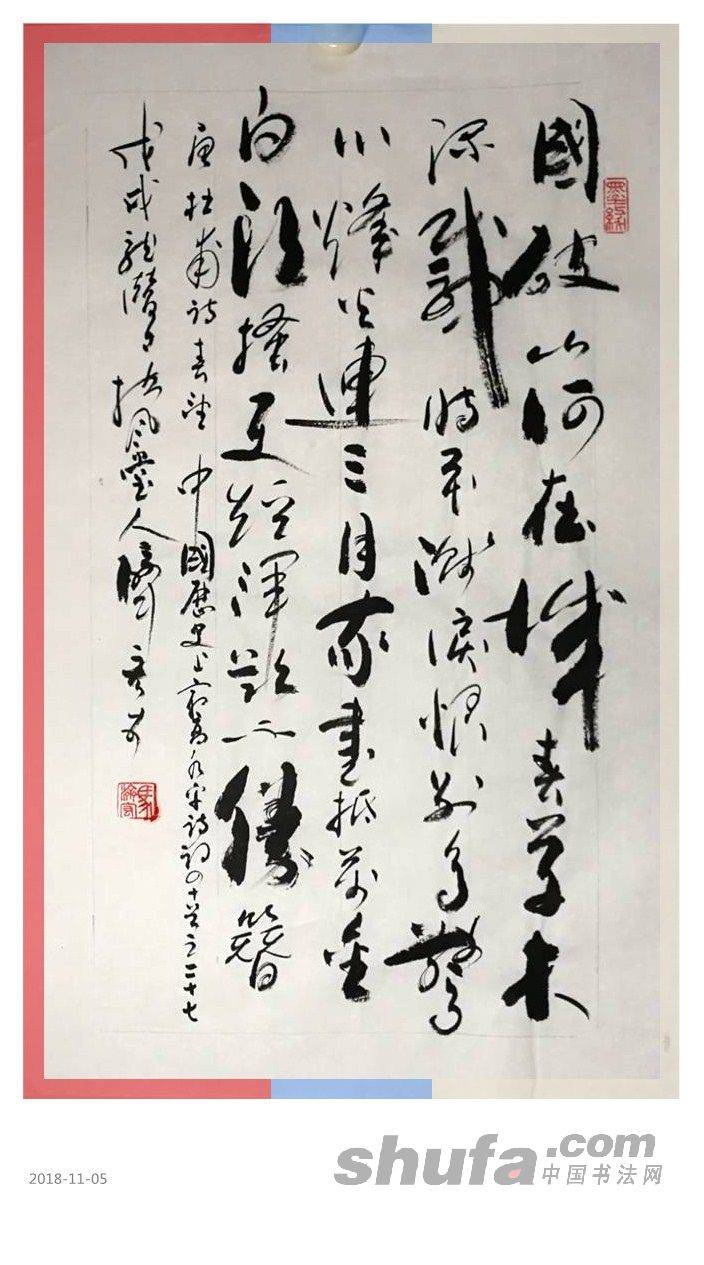 墨緣
國破山河在城春草木
深感時花濺淚恨別鳥驚
心烽火連三月家書抵萬金
白頭搔更短渾欲不勝簪
唐杜甫詩春望 中國歷史上宋詩詞四十首之二十七
戊戌龍潛月扶風堂人
2018-11-05
shufa.com
中国书法网